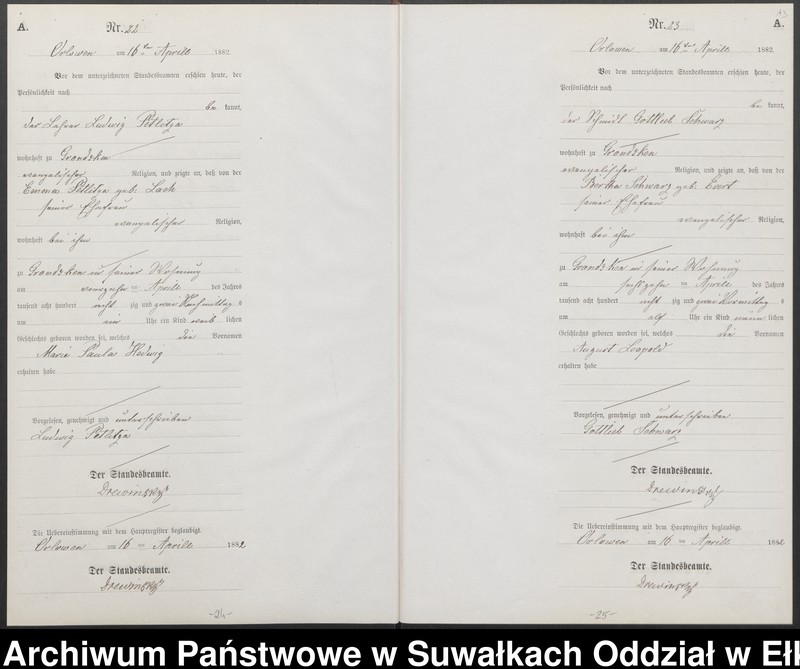 A. Nr. 22
Orlowen am 16 ten Aprill 1882.
Vor dem unterzeichneten Standesbeamten erschien heute, der
Persönlichkeit nach
be kannt,
der Lehrer Ludwig Petlitza
wohnhaft zu Grondzken
evangelischer Religion, und zeigte an, daß von der
Emma Petlitza geb. Lach
seiner Ehefrau
evangelischer Religion,
wohnhaft bei ihm
zu Grondzken in seiner Wohnung
am vierzehn ten Aprill des Jahres
tausend acht hundert acht zig und zwei Nachmittag s
um ein Uhr ein Kind weib lichen
Geschlechts geboren worden sei, welches die Vornamen
Marie Paula Hedwig
erhalten habe
Vorgelesen, genehmigt und unterschrieben
Ludwig Petlitza
Der Standesbeamte.
Drewinski
Die Uebereinstimmung mit dem Hauptregister beglaubigt.
Orlowen am 16 ten Aprill 1882
Der Standesbeamte.
Drewinski
-24-
Nr. 23 A.
Orlowen am 16 ten Aprill 1882.
Vor dem unterzeichneten Standesbeamten erschien heute, der
Persönlichkeit nach
be kannt,
der Schmidt Gottlieb Schwarz
wohnhaft zu Grondzken
evangelischer Religion, und zeigte an, daß von der
Bertha Schwarz geb. Evert
seiner Ehefrau
evangelischer Religion,
wohnhaft bei ihm
zu Grondzken in seiner Wohnung
am sechszehn ten Aprill des Jahres
tausend acht hundert acht zig und zwei Vormittag s
um elf Uhr ein Kind männ lichen
Geschlechts geboren worden sei, welches die Vornamen
August Leopold
erhalten habe
Vorgelesen, genehmigt und unterschrieben
Gottlieb Schwarz
Der Standesbeamte.
Drewinski
Die Uebereinstimmung mit dem Hauptregister beglaubigt.
Orlowen am 16 ten Aprill 1882
Der Standesbeamte.
Drewinski
-25-
Archiwum Państwowe w Suwałkach Oddział w Ełk